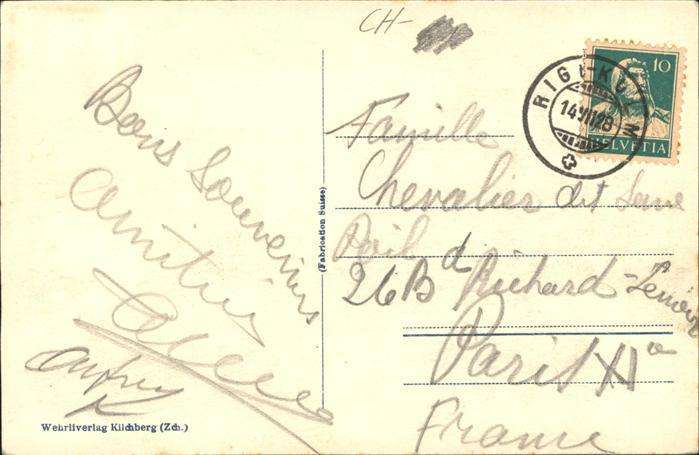 CH-
10
HELVETIA
RIGI-KULM
14.VII.28
Bons Souvenirs
amitiés
Famille
Chevalier dit Sans
Poil
26 Bd Richard-Lenoir
Paris XIe
France
(Fabrication Suisse)
Wehrliverlag Kilchberg (Zch.)